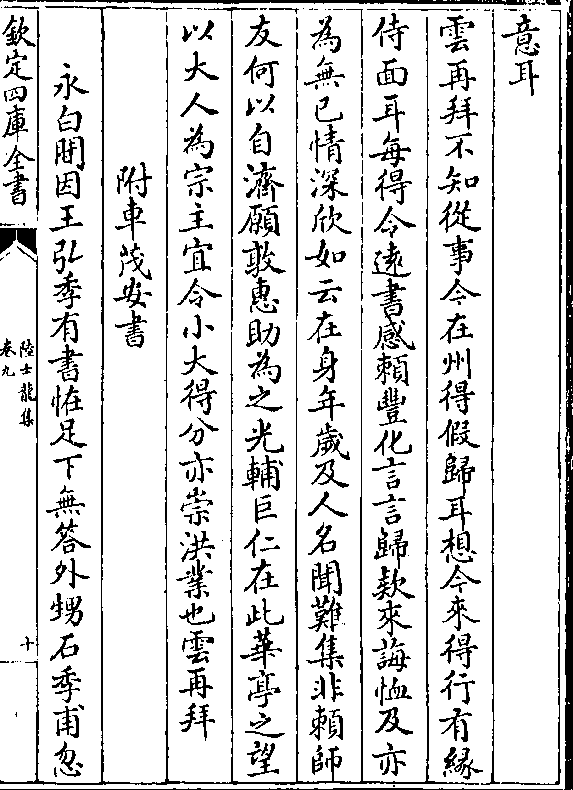 意耳
雲再拜不知從事今在州得假歸耳想今來得行有縁
侍面耳每得令逺書感賴豐化言言歸欵來誨恤及亦
為無已情深欣如云在身年歲及人名聞難集非賴師
友何以自濟願敦惠助為之光輔巨仁在此華亭之望
以大人為宗主宜令小大得分亦崇洪業也雲再拜
附車茂安書
永白間因王弘季有書恠足下無答外甥石季甫忽
欽定四庫全書
陸士龍集
卷九
十